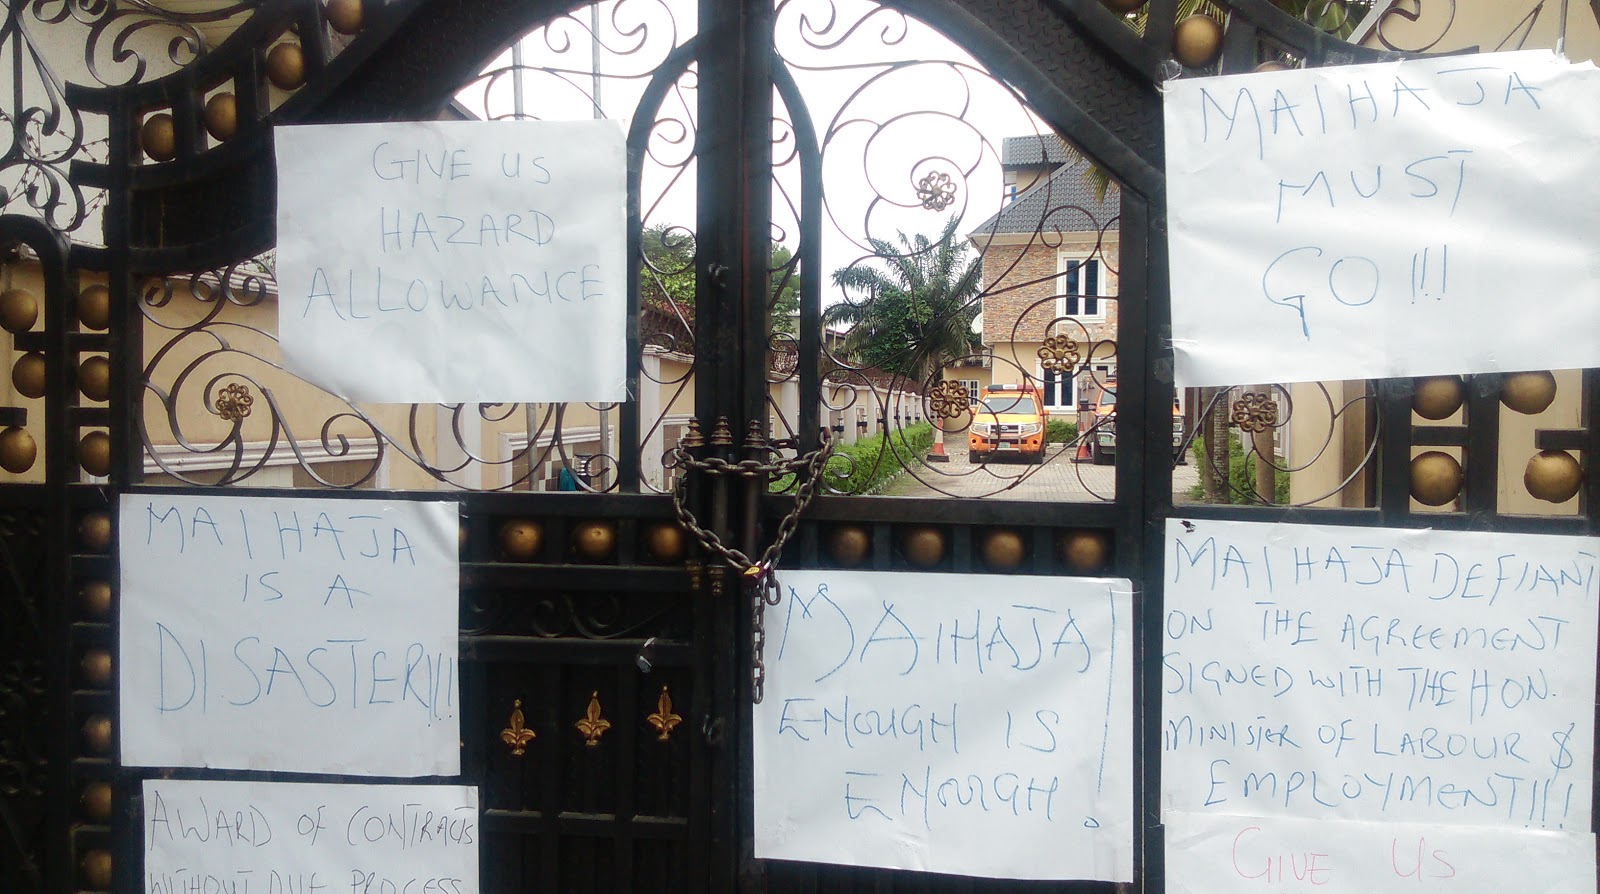 GIVE US
HAZARD
ALLOWANCE
MAIHAJA
MUST
GO!!!
MAIHAJA
IS A
DISASTER!!!
MAIHAJA!
ENOUGH IS
ENOUGH
MAIHAJA DEFIANT
ON THE AGREEMENT
SIGNED WITH THE HON.
MINISTER OF LABOUR $
EMPLOYMENT!!!
AWARD OF CONTRACTS
WITHOUT DUE PROCESS
GIVE US